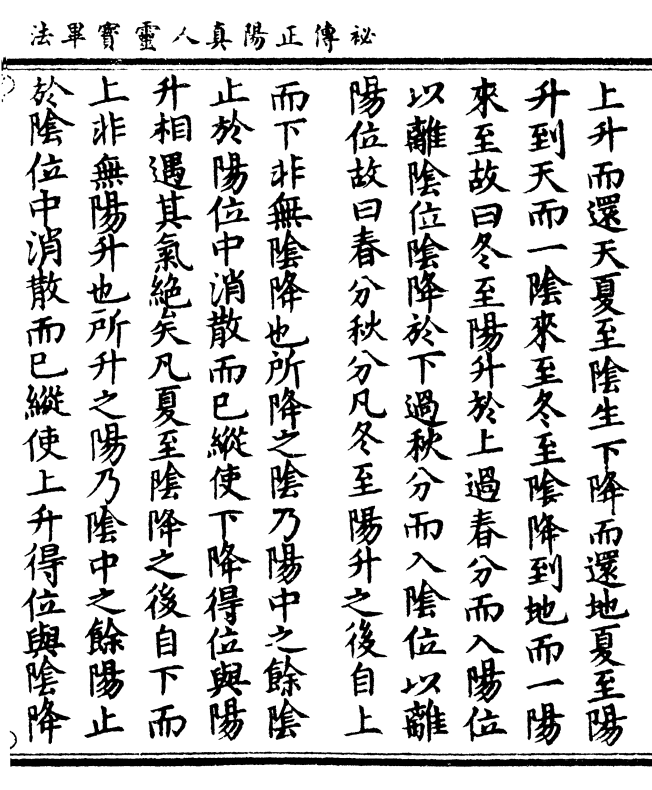 秘傳正陽真人靈寶畢法
上升而還天夏至陰生下降而還地夏至陽
升到天而一陰來至冬至陰降到地而一陽
來至故曰冬至陽升於上過春分而入陽位
以離陰位陰降於下過秋分而入陰位以離
陽位故曰春分秋分凡冬至陽升之後自上
而下非無陰降也所降之陰乃陽中之餘陰
止於陽位中消散而已縱使下降得位與陽
升相遇其氣絕矣凡夏至陰降之後自下而
上非無陽升也所升之陽乃陰中之餘陽止
於陰位中消散而已縱使上升得位與陰降